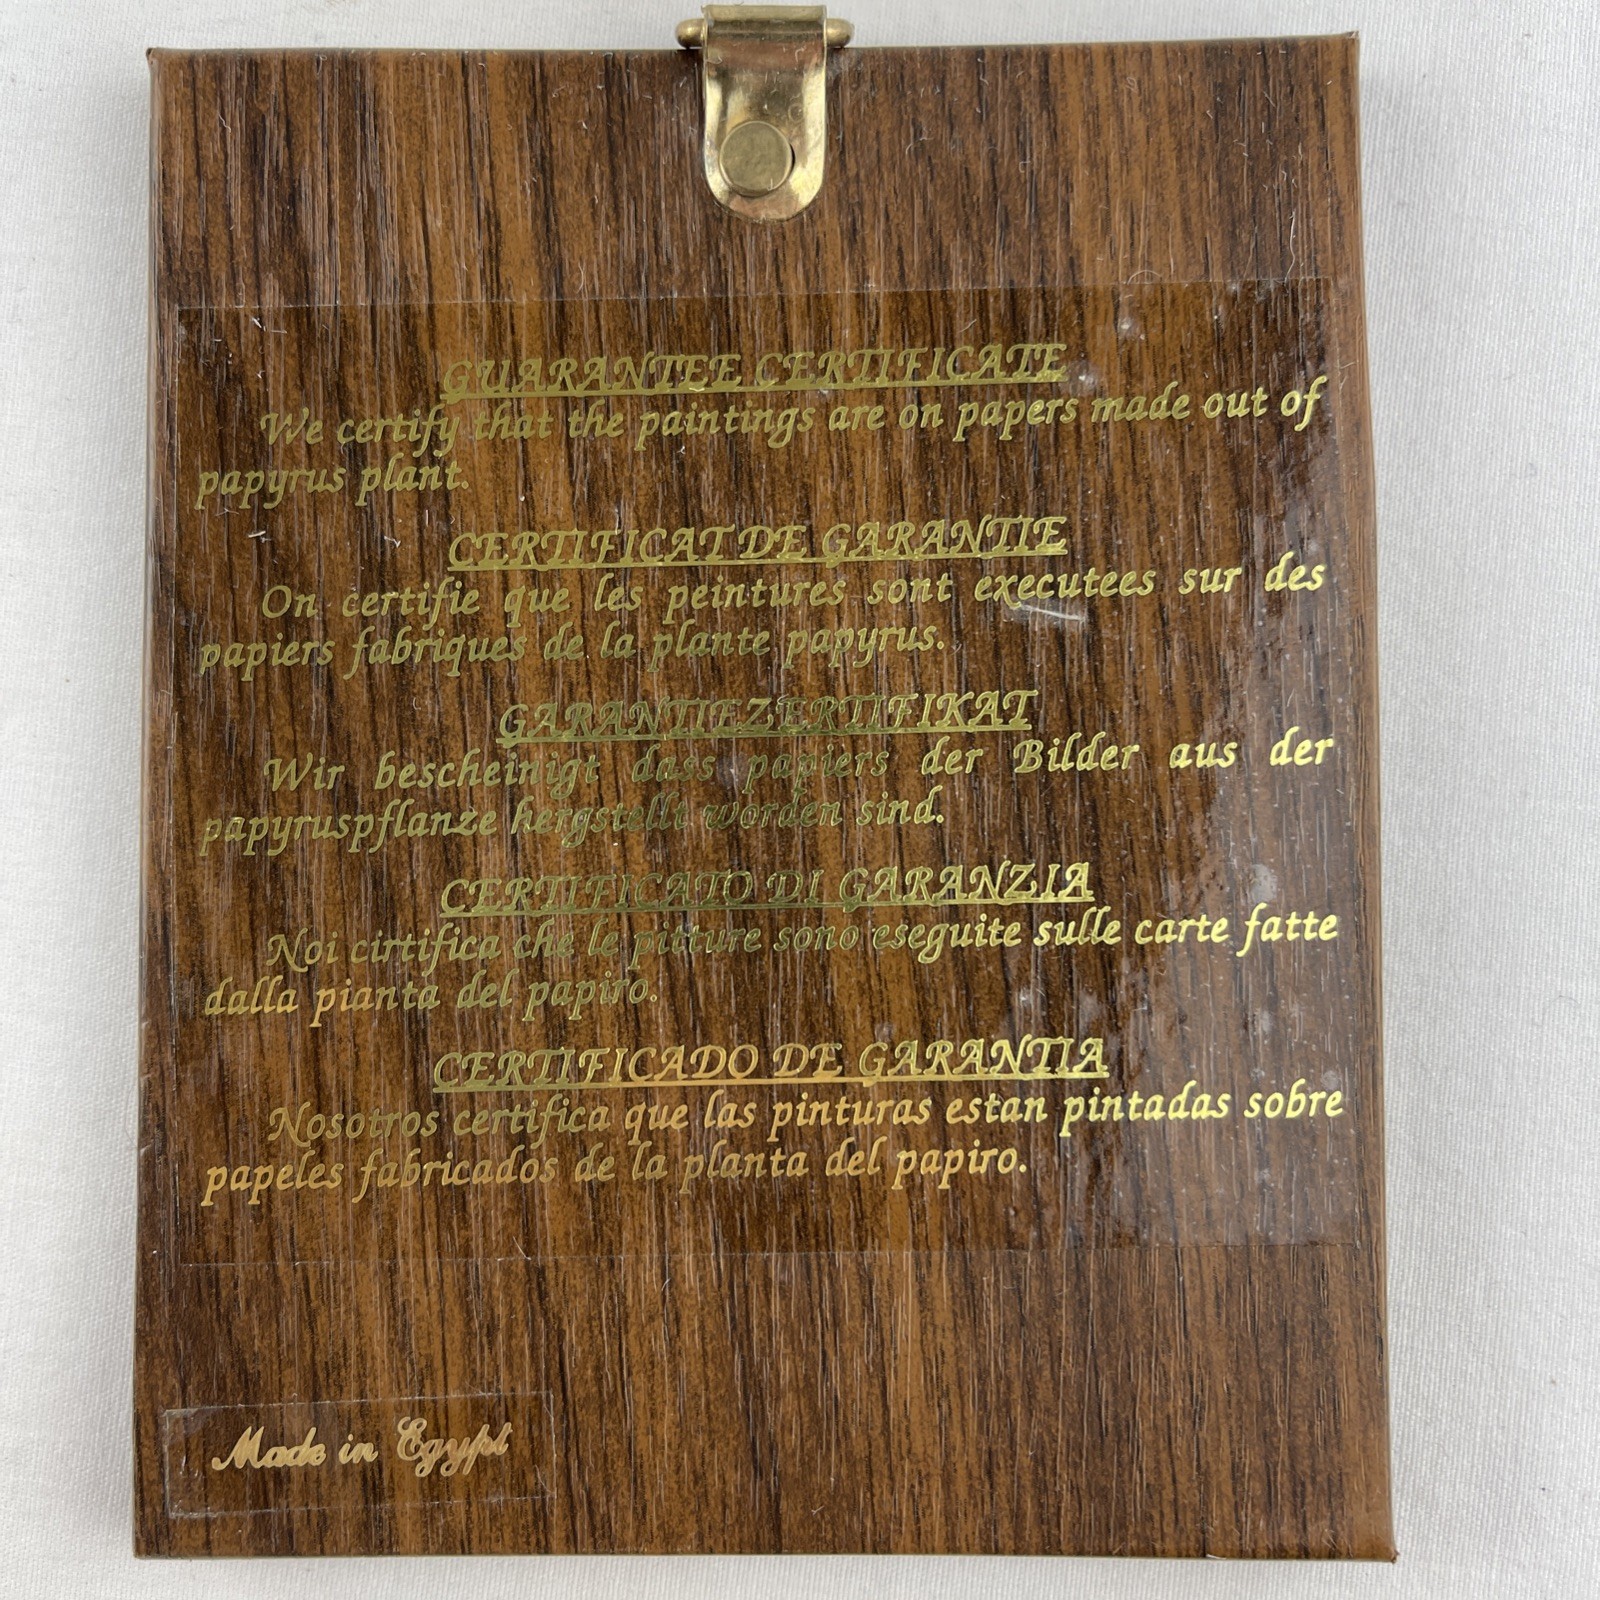 GUARANTEE CERTIFICATE
We certify that the paintings are on papers made out of
papyrus plant.
CERTIFICAT DE GARANTIE
On certifie que les peintures sont executees sur des
papiers fabriques de la plante papyrus.
GARANTIEZERTIFIKAT
Wir bescheinigt dass papiers der Bilder aus der
papyruspflanze hergstellt worden sind.
CERTIFICATO DI GARANZIA
Noi cirtifica che le pitture sono eseguite sulle carte fatte
dalla pianta del papiro.
CERTIFICADO DE GARANTIA
Nosotros certifica que las pinturas estan pintadas sobre
papeles fabricados de la planta del papiro.
Made in Egypt